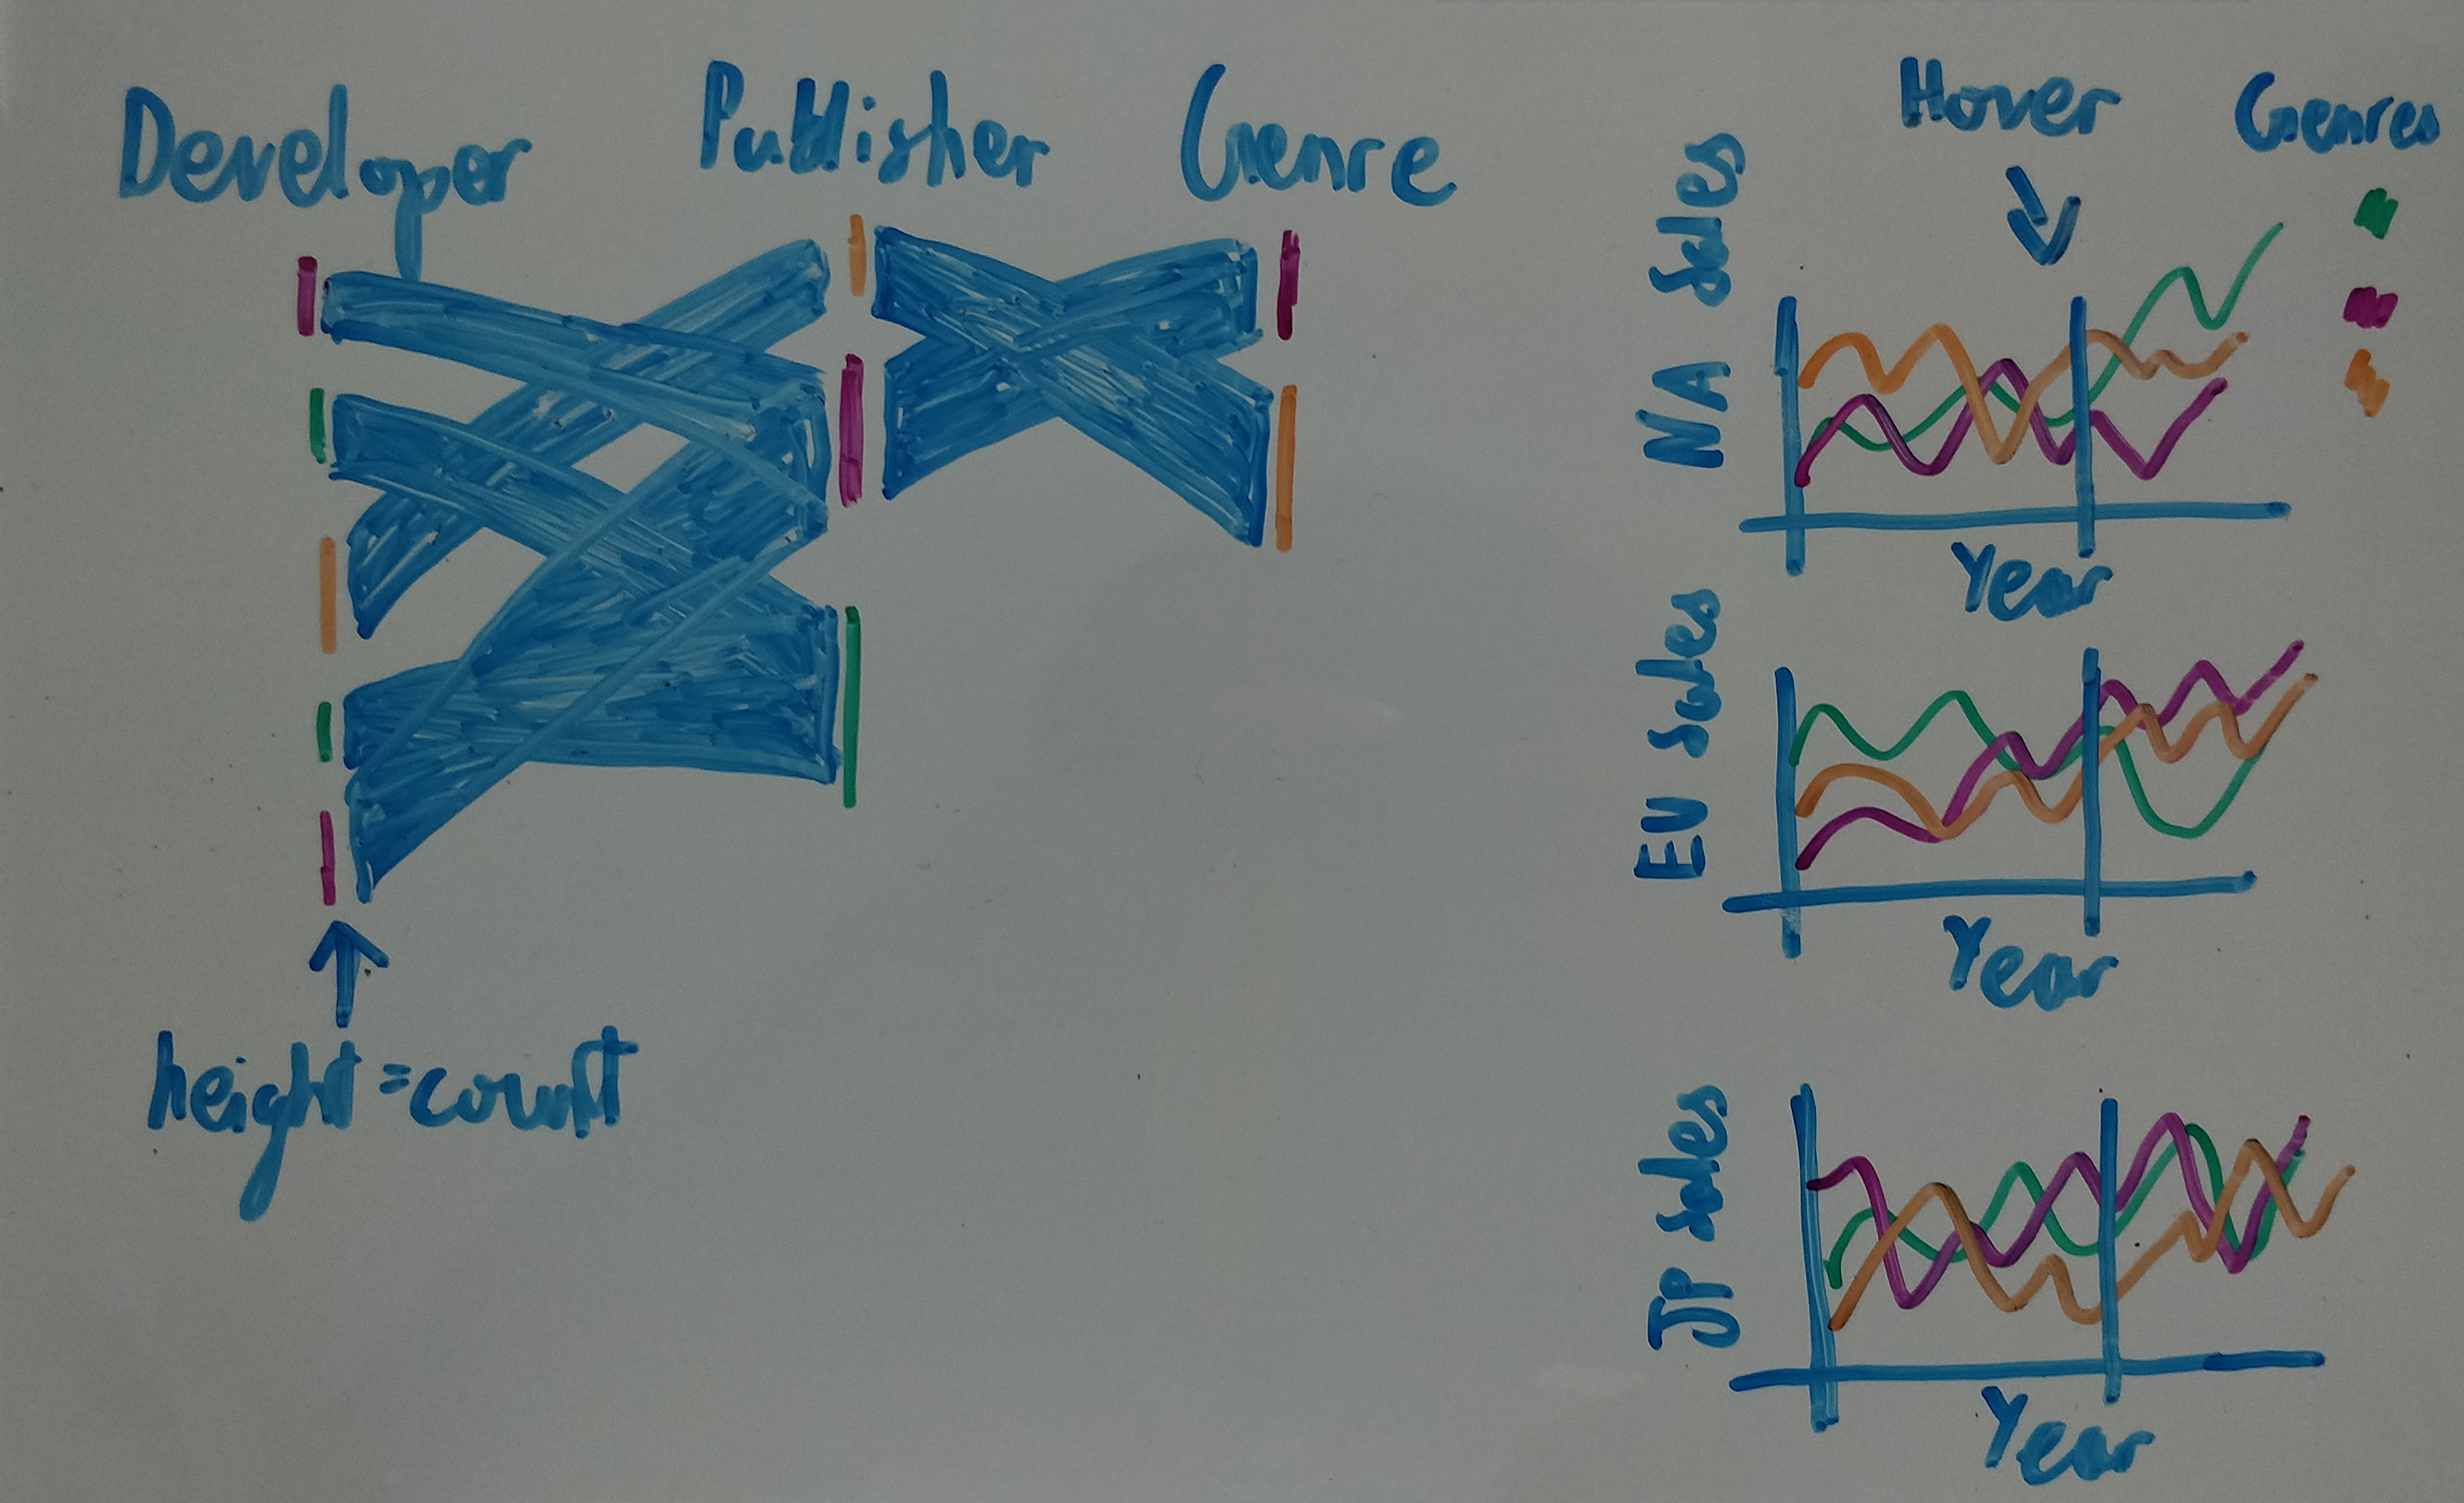 Developer
Publisher
Genre
height=count
Hover
Genres
NA Sales
Year
EU Sales
Year
JP Sales
Year